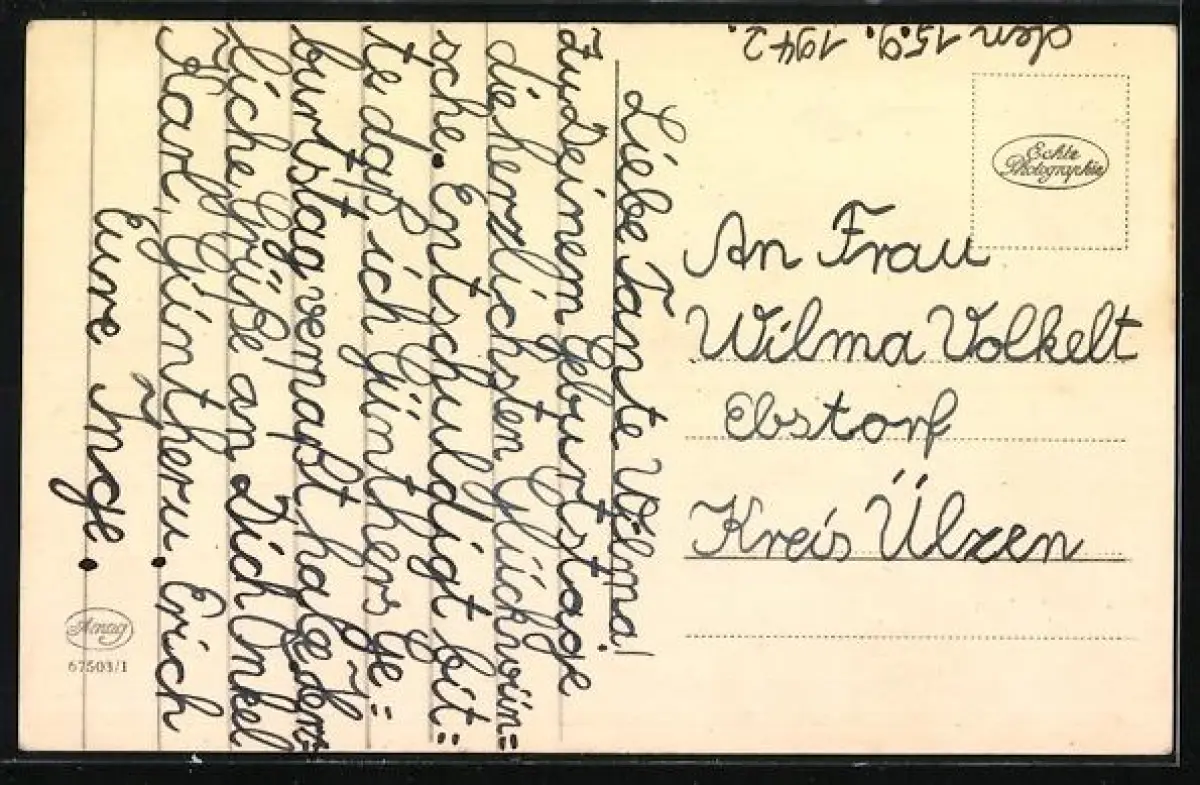 den 15.9.1942.
Liebe Tante Wilma!
Zu Deinem Geburtstage
die herzlichsten Glückwün=
sche. Entschuldigt bit=
te daß ich Günthers Ge=
burtstag vermaßt habe.
liche Grüße an Dich Onkel
Karl, Günther u. Erich
Eure Inge.
Echte
Photographie
An Frau
Wilma Volkelt
Ebstorf
Kreis Ülzen
Amag
67503/1